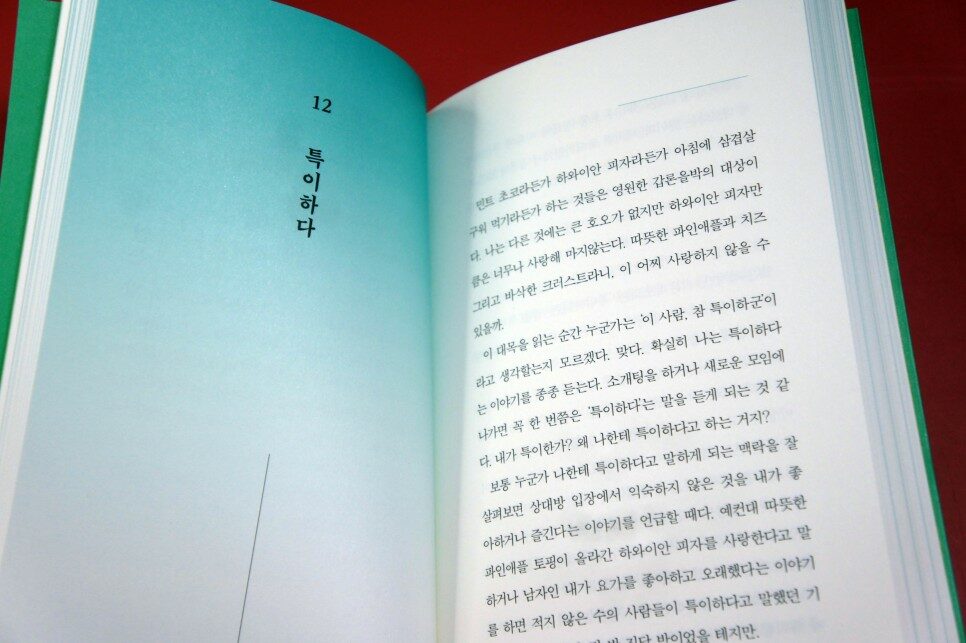 12
특이하다
민트 초코라든가 하와이안 피자라든가 아침에 삼겹살
구워 먹기라든가 하는 것들은 영원한 갑론을박의 대상이
다. 나는 다른 것에는 큰 호오가 없지만 하와이안 피자만
큼은 너무나 사랑해 마지않는다. 따뜻한 파인애플과 치즈
그리고 바삭한 크러스트라니. 이 어찌 사랑하지 않을 수
있을까.
이 대목을 읽는 순간 누군가는 '이 사람, 참 특이하군'이
라고 생각할는지 모르겠다. 맞다. 확실히 나는 특이하다
는 이야기를 종종 듣는다. 소개팅을 하거나 새로운 모임에
나가면 꼭 한 번쯤은 '특이하다'는 말을 듣게 되는 것 같
다. 내가 특이한가? 왜 나한테 특이하다고 하는 거지?
보통 누군가 나한테 특이하다고 말하게 되는 맥락을 잘
살펴보면 상대방 입장에서 익숙하지 않은 것을 내가 좋
아하거나 즐긴다는 이야기를 언급할 때다. 예컨대 따뜻한
파인애플 토핑이 올라간 하와이안 피자를 사랑한다고 말
하거나 남자인 내가 요가를 좋아하고 오래했다는 이야기
를 하면 적지 않은 수의 사람들이 특이하다고 말했던 기
반이었을 테지만.